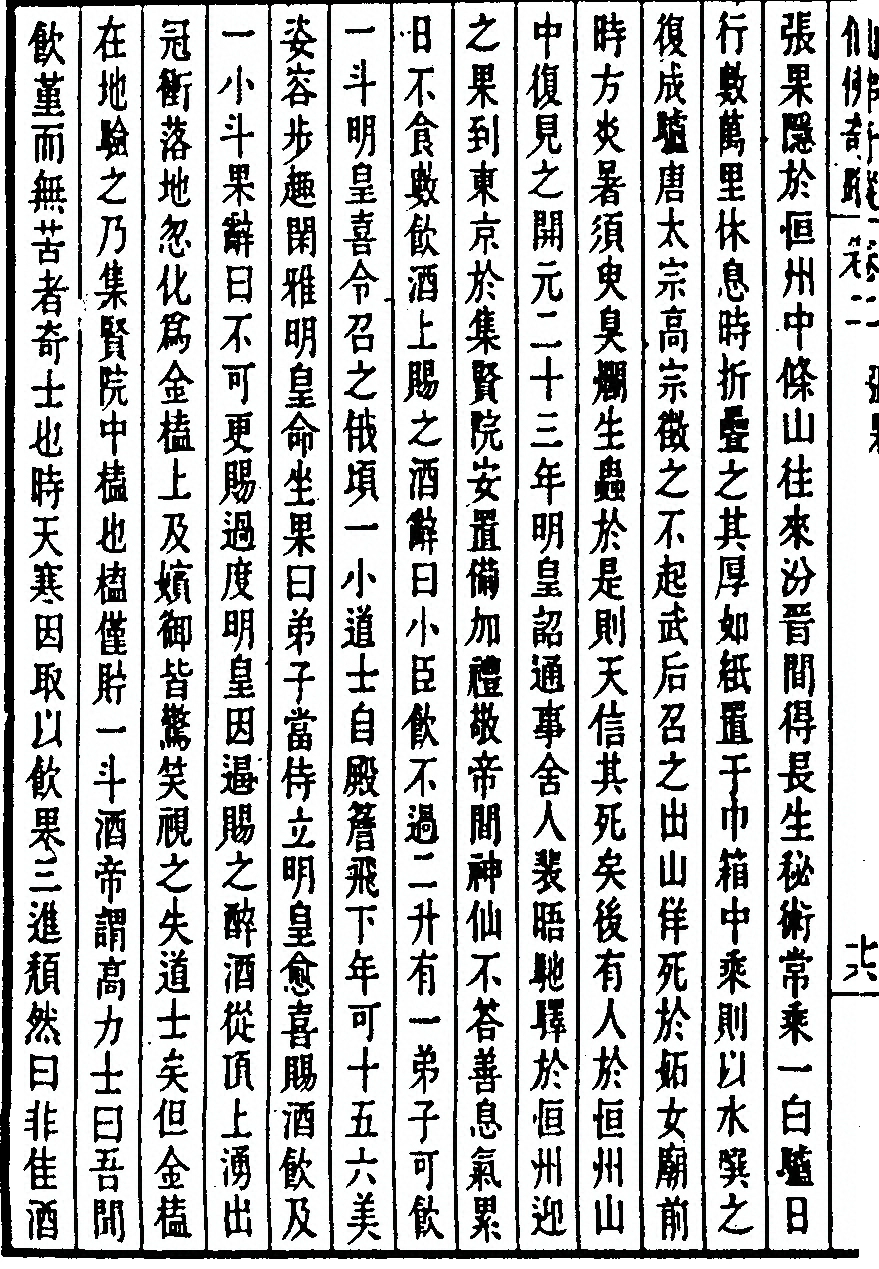 卷二
張果
十六
張果隱於恒州中條山往來汾晉間得長生秘術常乘一白驢日
行數萬里休息時折疊之其厚如紙置于巾箱中乘則以水噀之
復成驢唐太宗高宗徵之不起武后召之出山佯死於妬女廟前
時方炎暑須臾臭爛生蟲於是則天信其死矣後有人於恒州山
中復見之開元二十三年明皇詔通事舍人裴晤馳驛於恒州迎
之果到東京於集賢院安置備加禮敬帝問神仙不答善息氣累
日不食數飲酒上賜之酒辭曰小臣飲不過二升有一弟子可飲
一斗明皇喜令召之俄頃一小道士自殿簷飛下年可十五六美
姿容步趨閑雅明皇命坐果曰弟子當侍立明皇愈喜賜酒飲及
一小斗果辭曰不可更賜過度明皇因逼賜之醉酒從頂上湧出
冠衝落地忽化爲金榼上及嬪御皆驚笑視之失道士矣但金榼
在地驗之乃集賢院中榼也榼僅貯一斗酒帝謂高力士曰吾聞
飲堇而無苦者奇士也時天寒因取以飲果三進頹然曰非佳酒